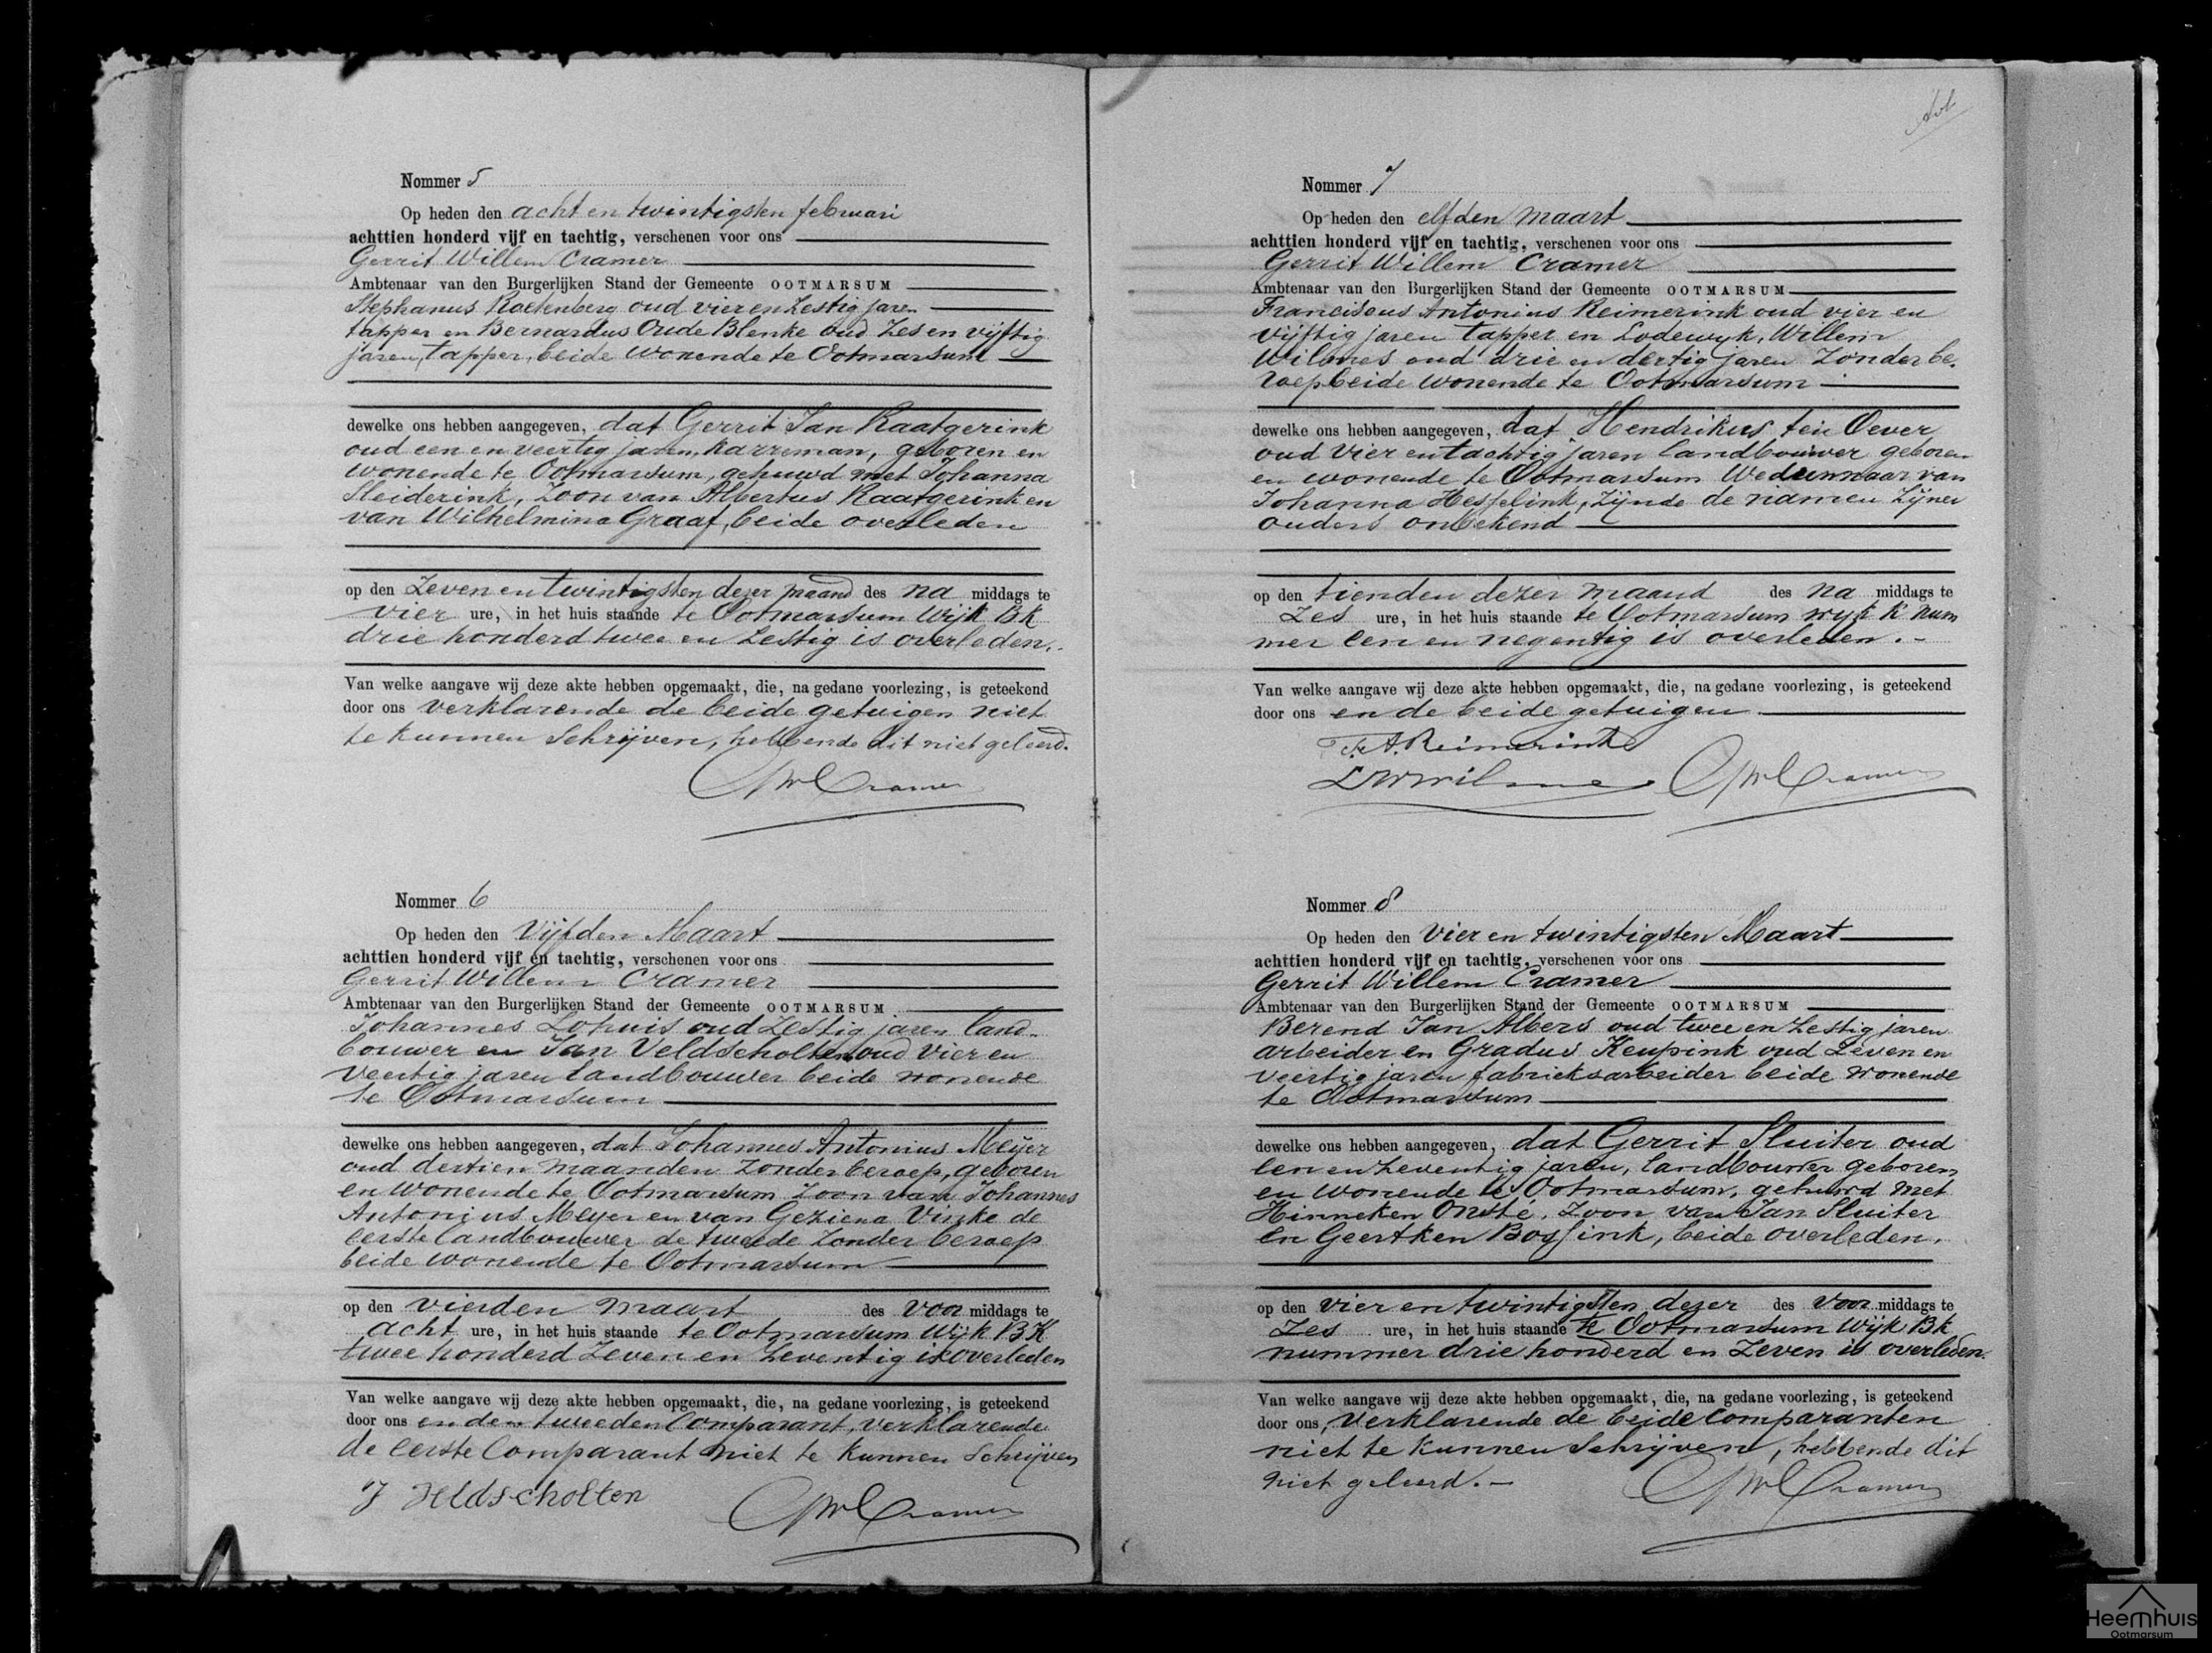 Nommer 5
Op heden den acht en twintigsten februari
achttien honderd vijf en tachtig, verschenen voor ons
Gerrit Willem Cramer
Ambtenaar van den Burgerlijken Stand der Gemeente OOTMARSUM
Stephanus oud vier en Zestig jaren
tapper en Bernardus Oude Blenke oud Zes en vijftig
jaren, tapper, beide wonende te Ootmarsum
dewelke ons hebben aangegeven, dat Gerrit Jan Raatgerink
oud een en veertig jaren, karreman, geboren en
wonende te Ootmarsum, gehuwd met Johanna
Sleiderink, Zoon van Albertus Raatgerink en
van Wilhelmina Graaf, beide overleden
op den Zeven en twintigsten dezer maand des na middags te
vier ure, in het huis staande te Ootmarsum Wijk BK
drie honderd twee en Zestig is overleden.
Van welke aangave wij deze akte hebben opgemaakt, die, na gedane voorlezing, is geteekend
door ons verklarende de beide getuigen niet
te kunnen Schrijven, hebbende dit niet geleerd.
GWCramer
Nommer 6
Op heden den Vijfden Maart
achttien honderd vijf en tachtig, verschenen voor ons
Gerrit Willem Cramer
Ambtenaar van den Burgerlijken Stand der Gemeente OOTMARSUM
Johannes Lohuis oud Zestig jaren land-
bouwer en Jan Veldscholten oud Vier en
Veertig jaren landbouwer beide wonende
te Ootmarsum
dewelke ons hebben aangegeven, dat Johannes Antonius Meijer
oud dertien maanden Zonder beroep, geboren
en wonende te Ootmarsum Zoon van Johannes
Antonius Meyer en van Geziena Vinke de
eerste landbouwer de tweede Zonder beroep
beide wonende te Ootmarsum
op den vierden maart des voor middags te
acht ure, in het huis staande te Ootmarsum Wijk BK
twee honderd Zeven en Zeventig is overleden
Van welke aangave wij deze akte hebben opgemaakt, die, na gedane voorlezing, is geteekend
door ons en den tweeden Comparant, verklarende
de eerste Comparant niet te kunnen Schrijven
J Veldscholten GWCramer
Nommer 7
Op heden den elfden maart
achttien honderd vijf en tachtig, verschenen voor ons
Gerrit Willem Cramer
Ambtenaar van den Burgerlijken Stand der Gemeente OOTMARSUM
Franciscus Antonius Reimerink oud vier en
vijftig jaren tapper en Lodewyk, Willem
Wilmes oud drie en dertig jaren Zonder be-
roep beide wonende te Ootmarsum
dewelke ons hebben aangegeven, dat Hendrikus ten Oever
oud Vier en tachtig jaren landbouwer geboren
en wonende te Ootmarsum Weduwnaar van
Johanna Hesselink, Zijnde de namen Zijner
ouders onbekend
op den tienden dezer maand des na middags te
Zes ure, in het huis staande te Ootmarsum wijk K num
mer een en negentig is overleden.
Van welke aangave wij deze akte hebben opgemaakt, die, na gedane voorlezing, is geteekend
door ons en de beide getuigen
F.A. Reimerink
LWWilmes GWCramer
Nommer 8
Op heden den Vier en twintigsten Maart
achttien honderd vijf en tachtig, verschenen voor ons
Gerrit Willem Cramer
Ambtenaar van den Burgerlijken Stand der Gemeente OOTMARSUM
Berend Jan Albers oud twee en Zestig jaren
arbeider en Gradus Keupink oud Zeven en
veertig jaren fabrieksarbeider beide wonende
te Ootmarsum
dewelke ons hebben aangegeven, dat Gerrit Sluiter oud
een en Zeventig jaren, landbouwer geboren
en wonende te Ootmarsum, gehuwd met
Hinneken Onste, Zoon van Jan Sluiter
en Geertken Bossink, beide overleden.
op den vier en twintigsten dezer des voor middags te
Zes ure, in het huis staande te Ootmarsum Wijk BK
nummer drie honderd en Zeven is overleden.
Van welke aangave wij deze akte hebben opgemaakt, die, na gedane voorlezing, is geteekend
door ons, verklarende de beide comparanten
niet te kunnen Schrijven, hebbende dit
niet geleerd.
GWCramer
Heemhuis
Ootmarsum